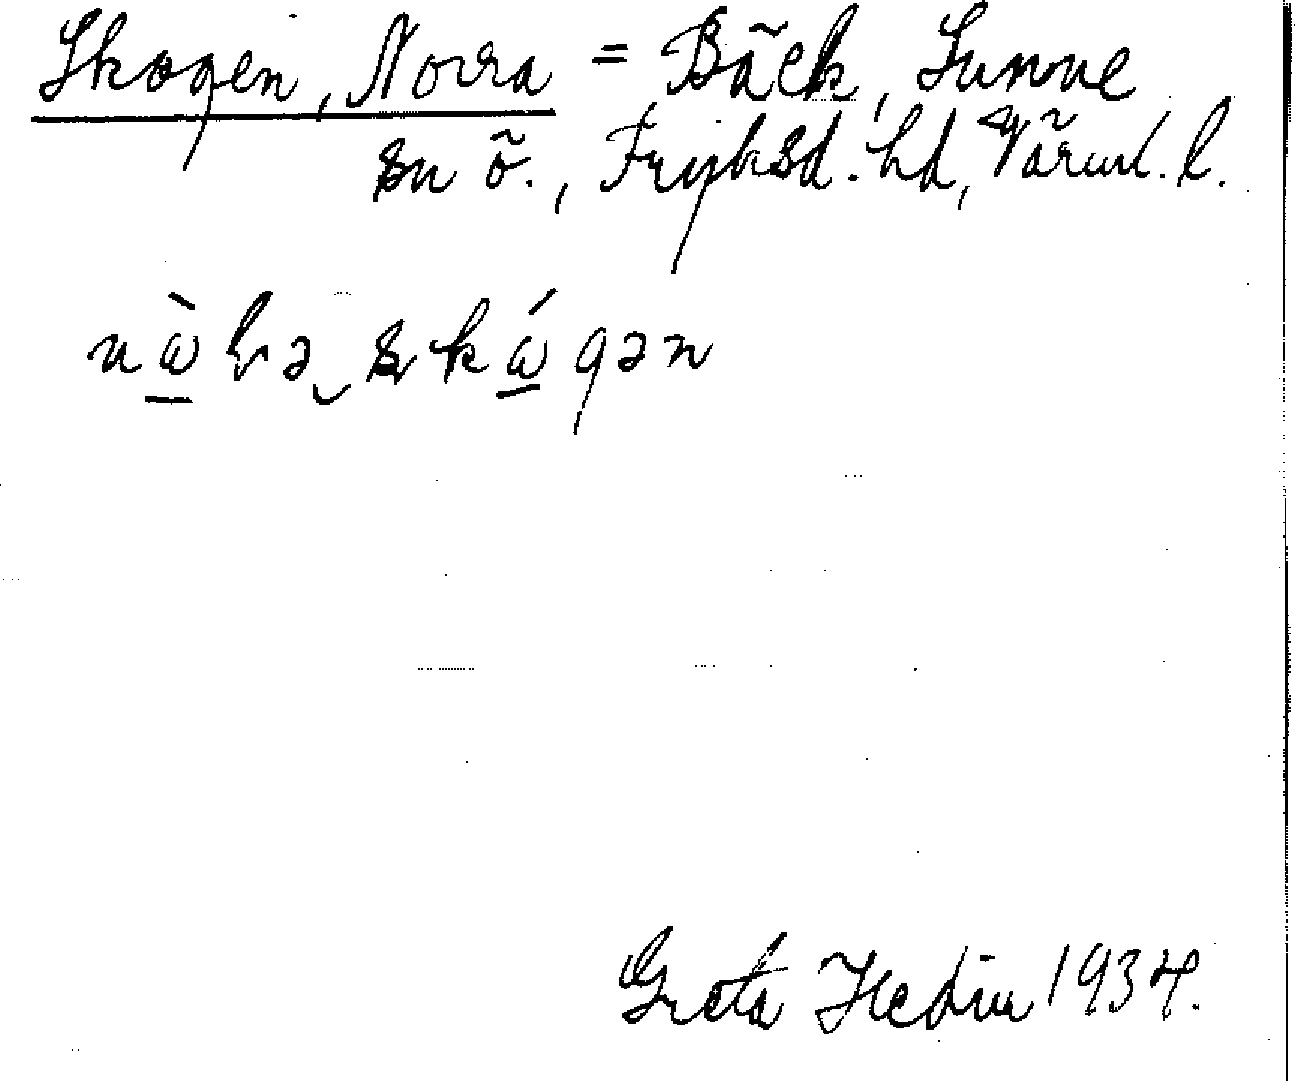 Skogen, Norra = Bäck, Sunne
sn ö., Fryksd. hd, Värml. l.
Greta Hedin 1934.